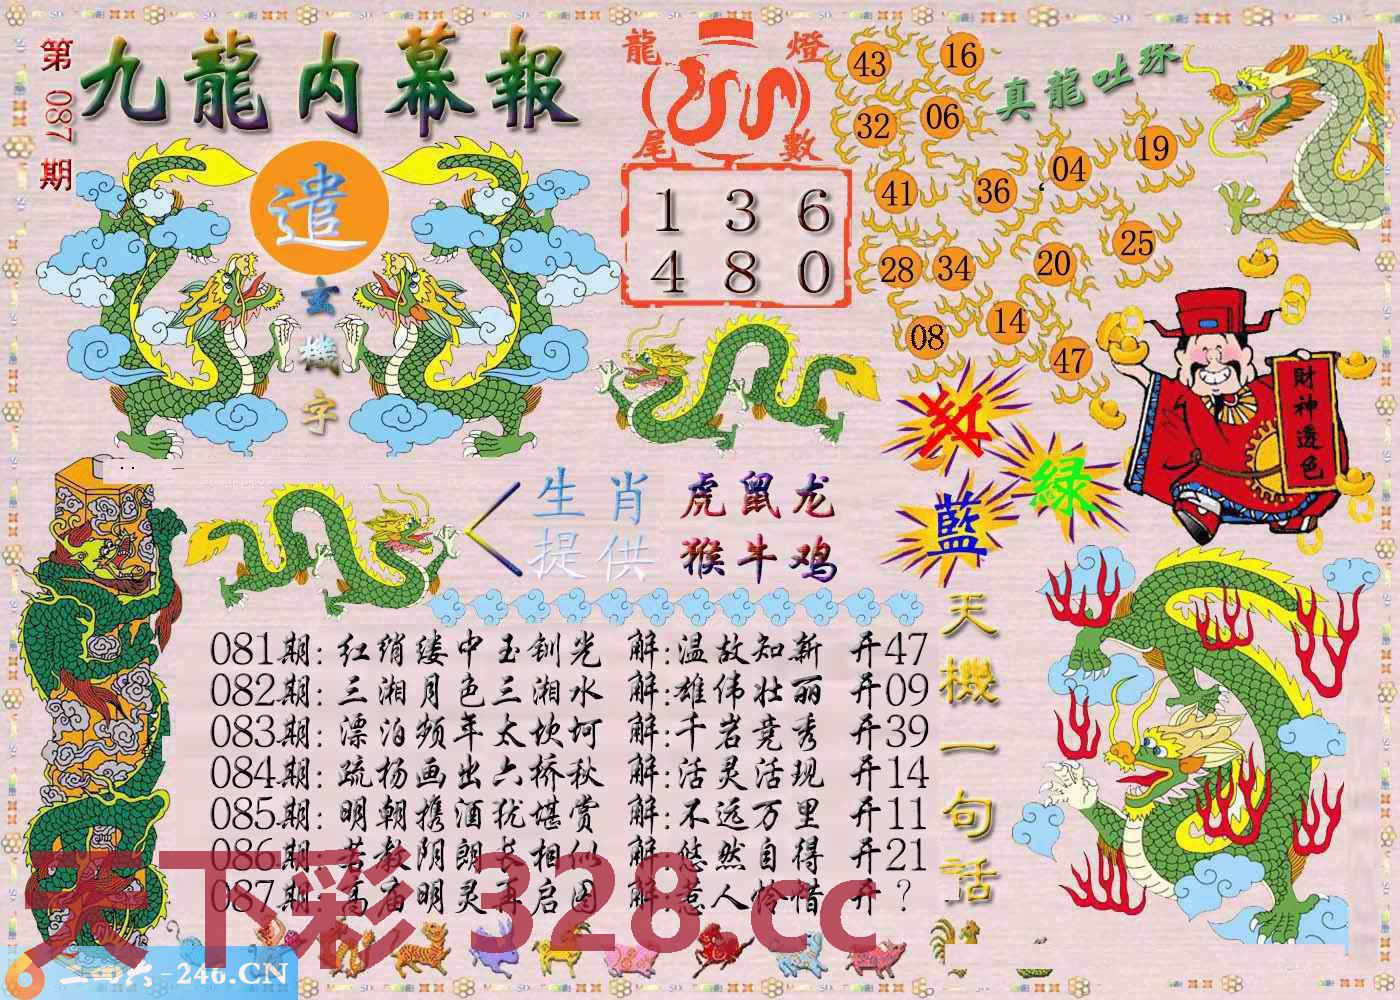 第087期
九龍内幕報
遣
玄機字
龍燈
尾數
1 3 6
4 8 0
真龍吐珠
43 16
32 06
41 36 04 19
28 34 20 25
08 14 47
財神透色
红
绿
藍
生肖
提供
虎鼠龙
猴牛鸡
081期: 红绡缕中玉钏光 解:温故知新 开47
082期: 三湘月色三湘水 解:雄伟壮丽 开09
083期: 漂泊频年太坎坷 解:千岩竞秀 开39
084期: 疏杨画出六桥秋 解:活灵活现 开14
085期: 明朝携酒犹堪赏 解:不远万里 开11
086期: 若教阴朗长相似 解:悠然自得 开21
087期: 高庙明灵再启图 解:惹人怜惜 开?
天機一句話
天下彩 328.cc
二四六-246.CN